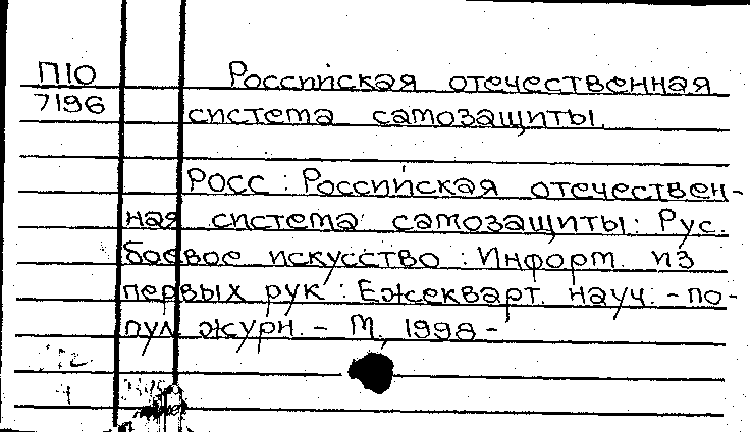 П10
7196
Российская отечественная
система самозащиты.
РОСС : Российская отечествен-
ная система самозащиты : Рус.
боевое искусство : Информ. из
первых рук : Ежекварт. науч. - по-
пул журн. - М, 1998 -